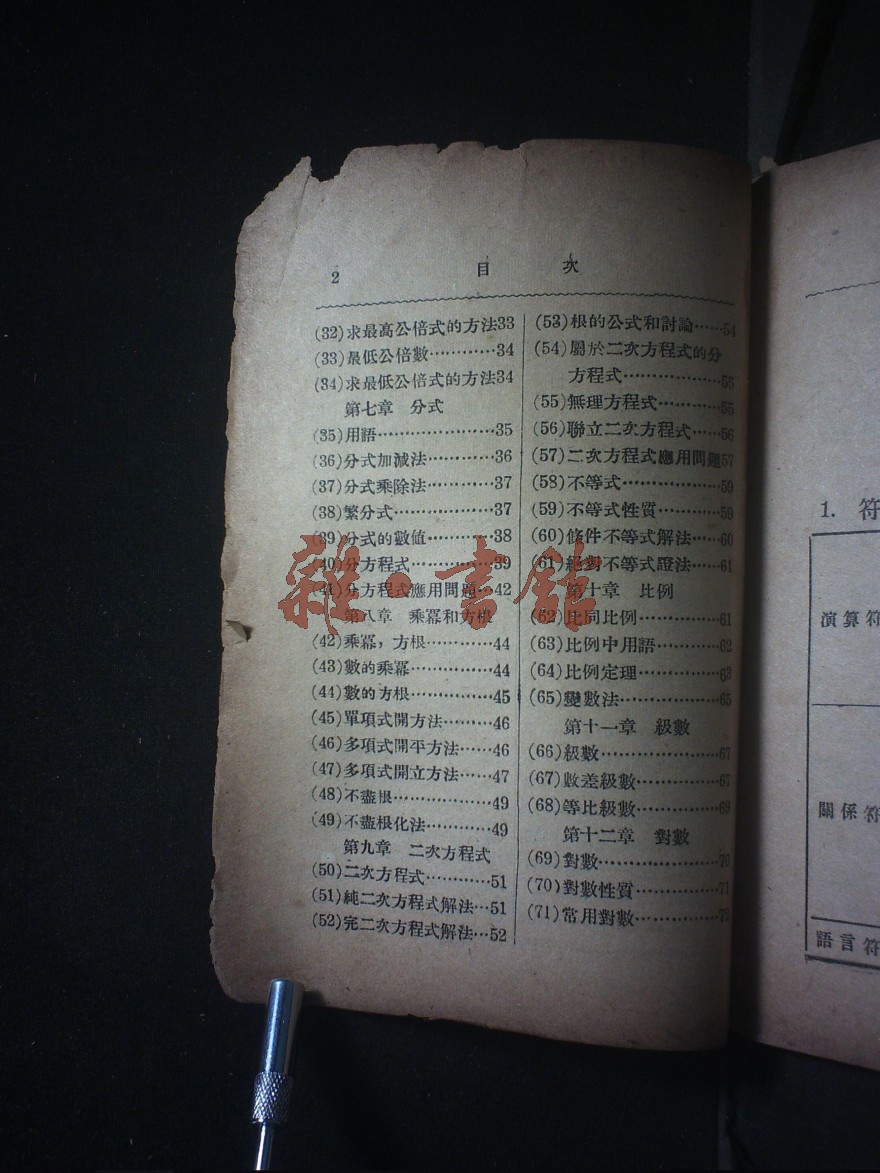 2
目 次
(32)求最高公倍式的方法33
(33)最低公倍數…………34
(34)求最低公倍式的方法34
第七章 分式
(35)用語…………………35
(36)分式加減法…………36
(37)分式乘除法…………37
(38)繁分式………………37
(39)分式的數值…………38
(40)分方程式……………39
(41)分方程式應用問題…42
第八章 乘冪和方根
(42)乘冪，方根…………44
(43)數的乘冪……………44
(44)數的方根……………45
(45)單項式開方法………46
(46)多項式開平方法……46
(47)多項式開立方法……47
(48)不盡根………………49
(49)不盡根化法…………49
第九章 二次方程式
(50)二次方程式…………51
(51)純二次方程式解法…51
(52)完二次方程式解法…52
(53)根的公式和討論……54
(54)屬於二次方程式的分
方程式………………55
(55)無理方程式…………55
(56)聯立二次方程式……56
(57)二次方程式應用問題57
(58)不等式………………59
(59)不等式性質…………59
(60)條件不等式解法……60
(61)絕對不等式證法……61
第十章 比例
(62)比同比例……………61
(63)比例中用語…………62
(64)比例定理……………63
(65)變數法………………65
第十一章 級數
(66)級數…………………67
(67)數差級數……………67
(68)等比級數……………69
第十二章 對數
(69)對數…………………70
(70)對數性質……………71
(71)常用對數……………72
雜·書館
1. 符
演算符
關係符
語言符